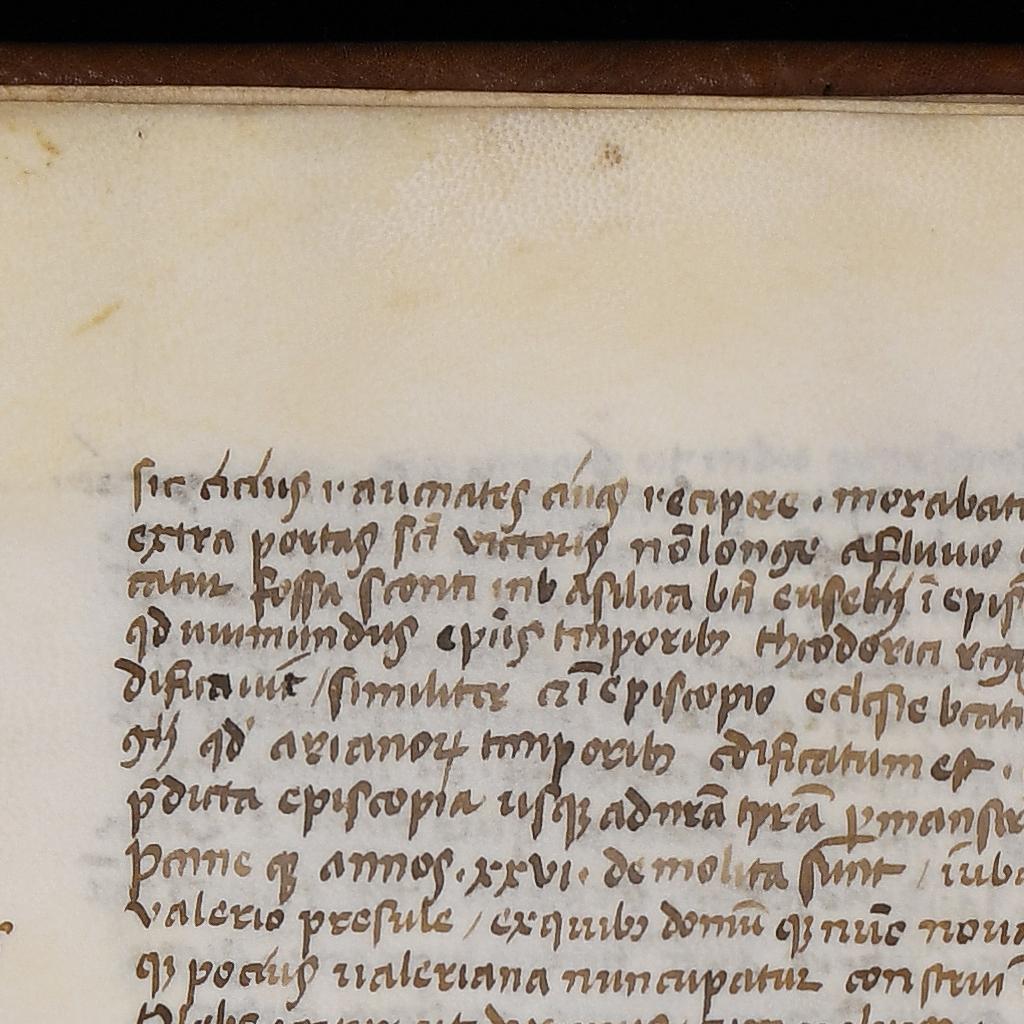 sic cicius rauenates ciuis recipere . morabat
extra portas scī victoris nō longe a fluuio
catur fossa sconii in basilica btī eusebii ī epis
qd uuimundus epūs tmporibꝫ theodorici reg
dificauit / similiter & ī episcopio eclesie beati
gii qd arianoꝝ tmporibꝫ edificatum est .
p̄dicta episcopia usqꝫ ad nrā tyrā ꝑmanser
pene qꝫ annos . xxvi . demolita sunt / iub
valerio presule / ex quibꝫ domū qꝫ nūc noua
qꝫ pocius ualeriana nuncupatur construi